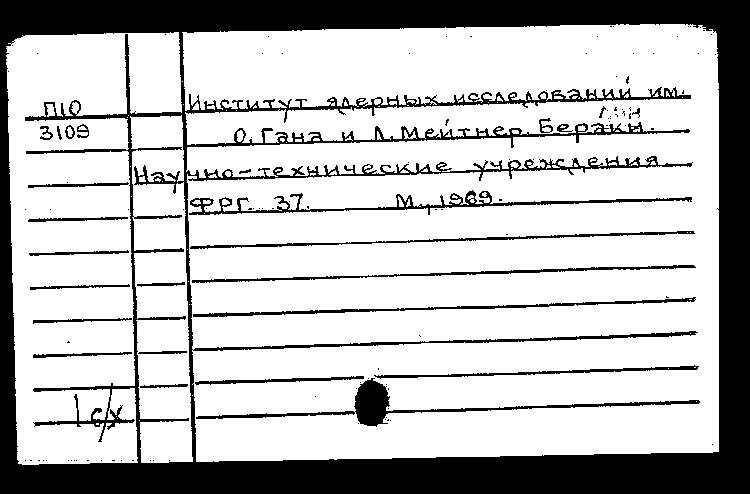 П10
3109
Институт ядерных исследований им.
О. Гана и Л. Мейтнер. Беракн.
лин
Научно-технические учреждения
ФРГ. 37. М., 1969.
1 с/х